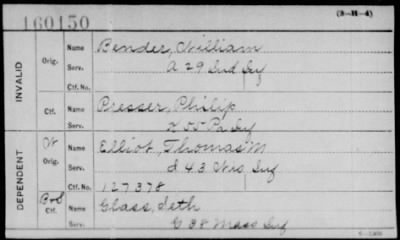 160150
(3-H-4)
INVALID
Orig. Name Bender, William
Serv. A 29 Ind Inf
Ctf. No.
Ctf. Name Presser, Philip
Serv. K 55 Pa Inf
DEPENDENT
W Orig. Name Elliot, Thomas M
Serv. I 43 Wis Inf
Ctf. No. 127378
Ctf. Name Glass, Seth
Serv. G 38 Mass Inf